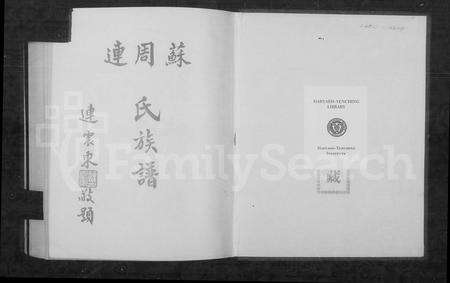 蘇周連
氏族譜
連震東敬題
HARVARD-YENCHING
LIBRARY
HARVARD-YENCHING
INSTITUTE
藏
FamilySearch